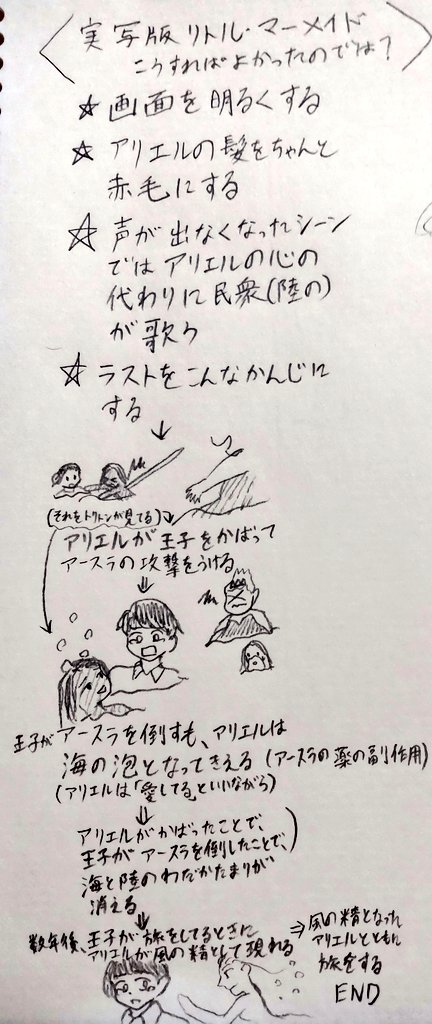 実写版リトル・マーメイド
こうすればよかったのでは?
☆画面を明るくする
☆アリエルの髪をちゃんと
赤毛にする
☆声が出なくなったシーン
ではアリエルの心の
代わりに民衆(陸の)
が歌う
☆ラストをこんなかんじに
する
↓
(それをトリトンが見てる)
アリエルが王子をかばって
アースラの攻撃をうける
⇓
王子がアースラを倒すも、アリエルは
海の泡となってきえる(アースラの薬の副作用)
(アリエルは「愛してる」といいながら)
⇓
アリエルがかばったことで、
王子がアースラを倒したことで、)
海と陸のわだかたまりが
消える
⇓
数年後、王子が旅をしてるときに
アリエルが風の精として現れる
⇒風の精となった
アリエルとともに
旅をする
END